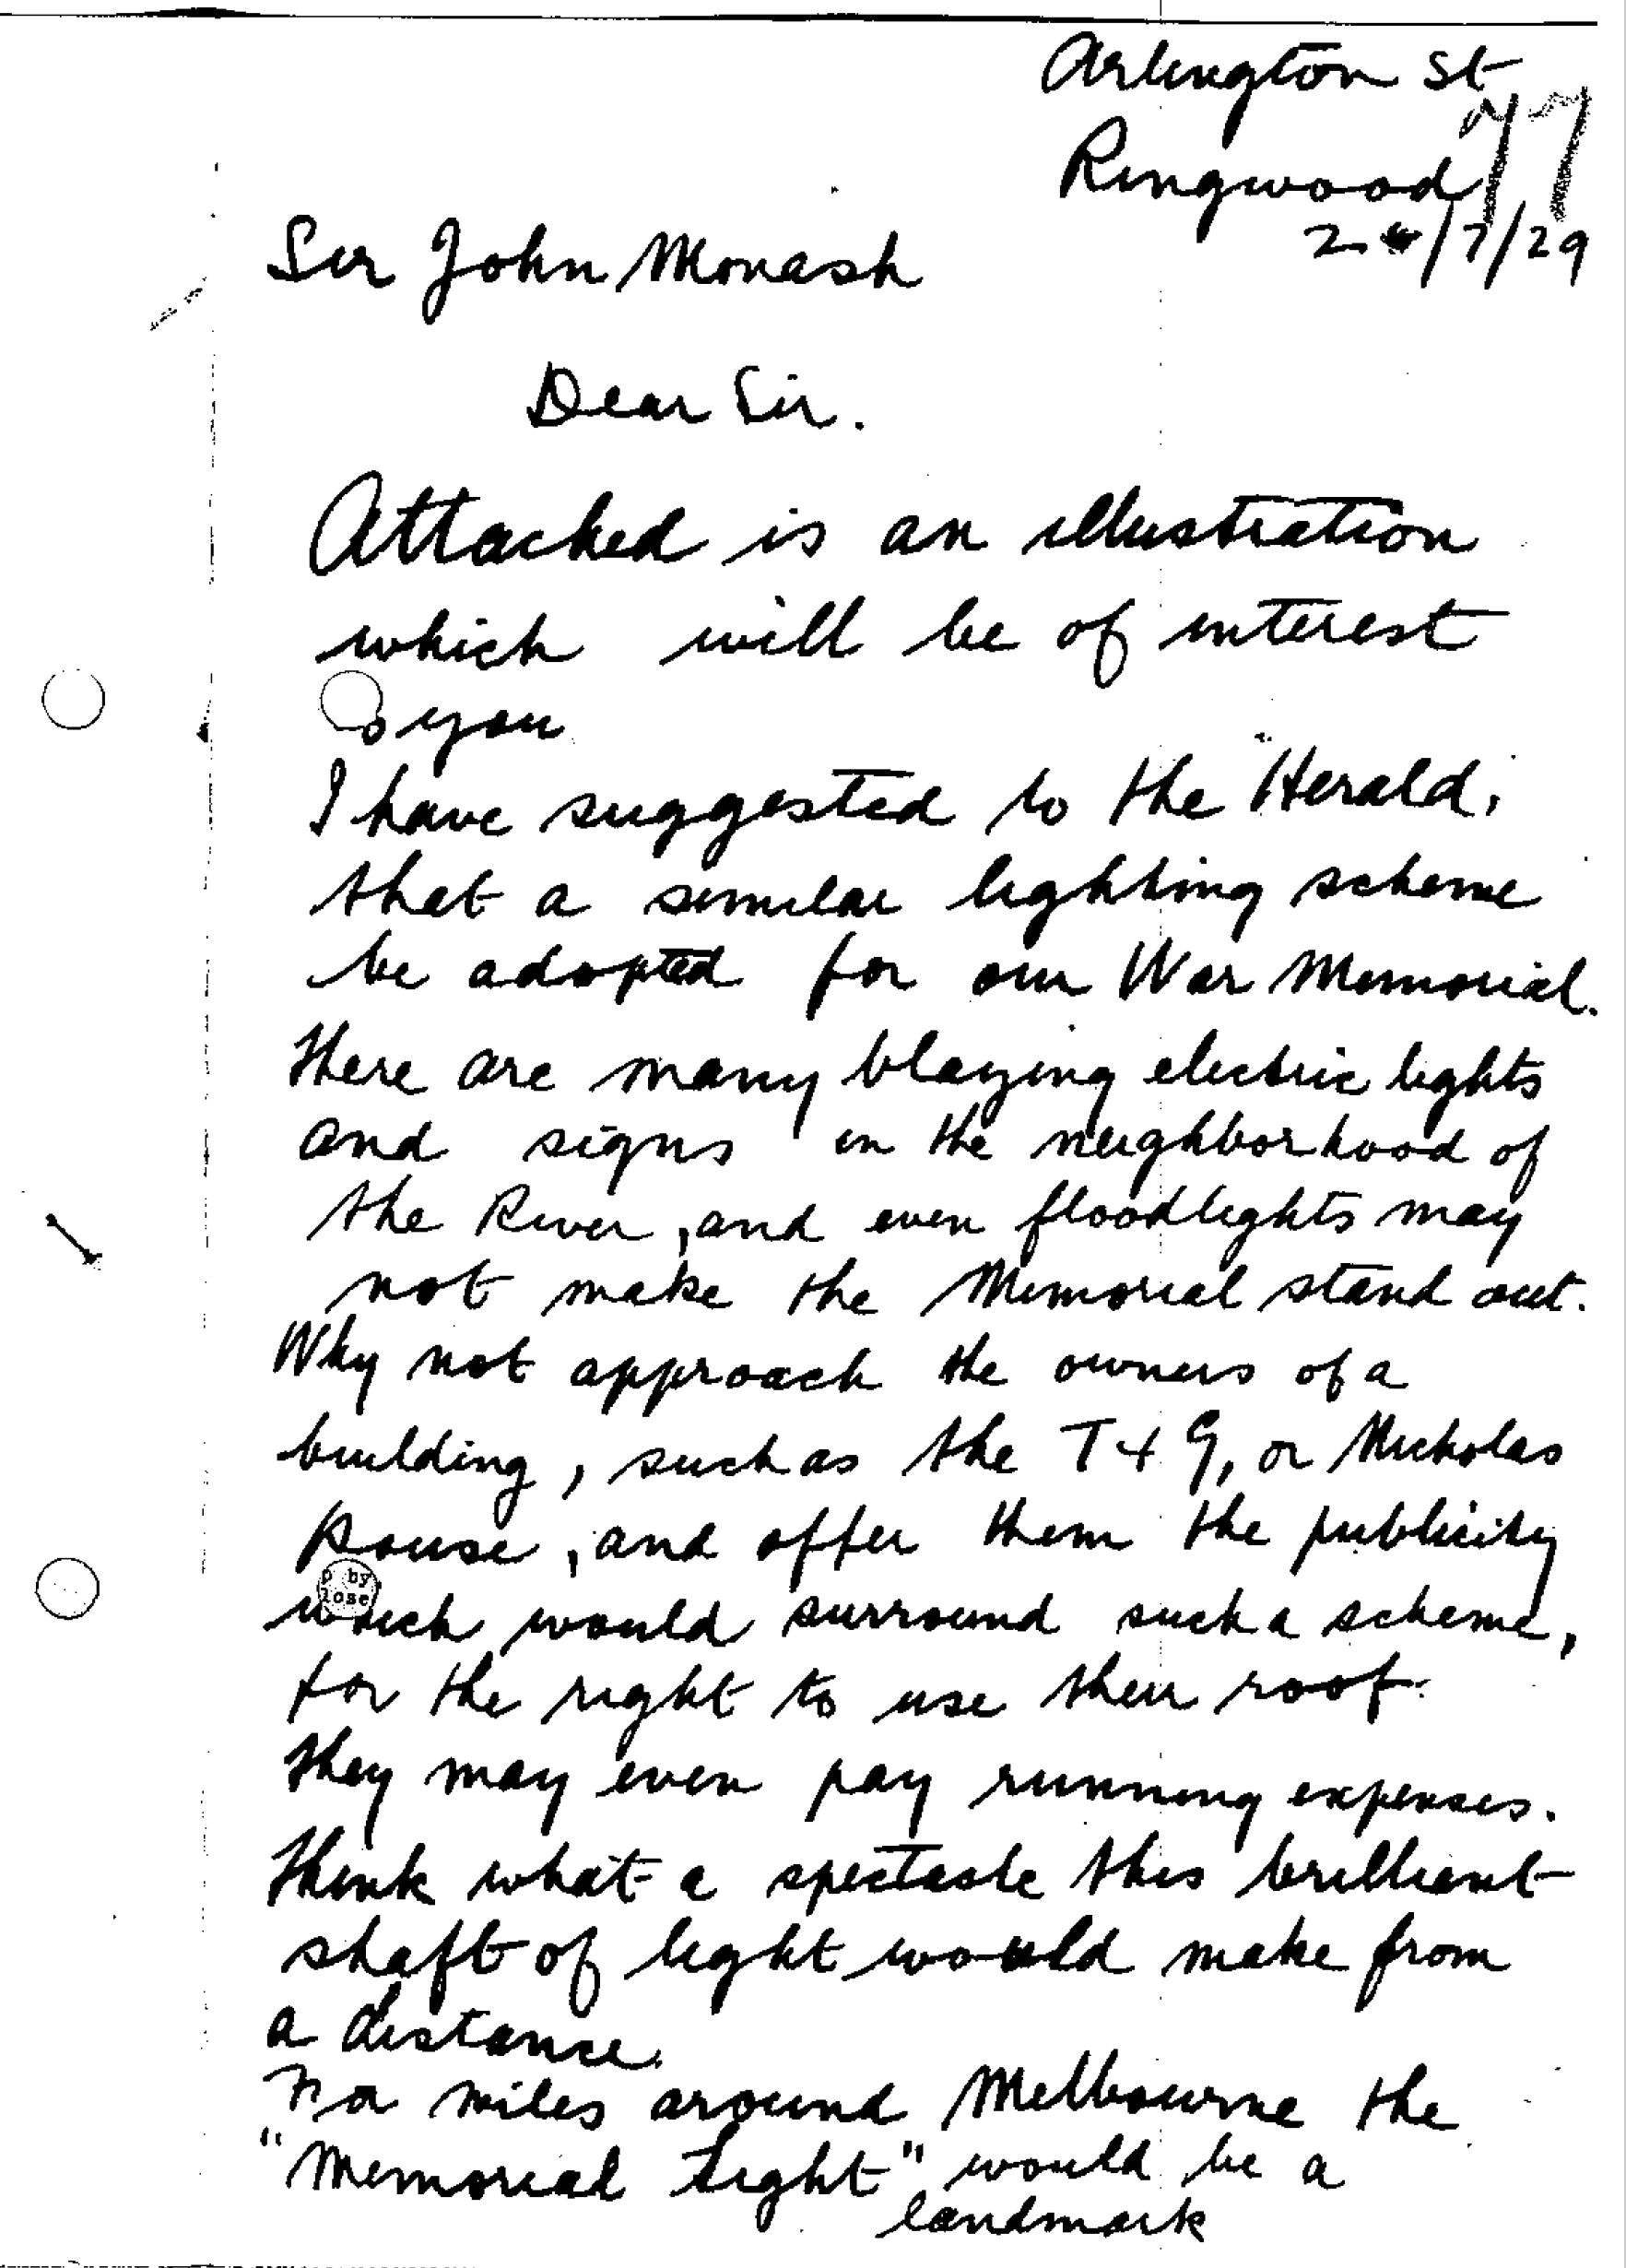 Arlington St
Ringwood
/7/29
Sir John Monash
Dear Sir.
Attached is an illustration
which will be of interest
to you
I have suggested to the "Herald"
that a similar lighting scheme
be adopted for our War Memorial.
There are many blazing electric lights
and signs in the neighborhood of
the River, and even floodlights may
not make the Memorial stand out.
Why not approach the owners of a
building, such as the T & G, or Nicholas
House, and offer them the publicity
which would surround such a scheme,
for the right to use their roof.
They may even pay running expenses.
Think what a spectacle this brilliant
shaft of light would make from
a distance.
For miles around Melbourne the
"Memorial Light" would be a
landmark